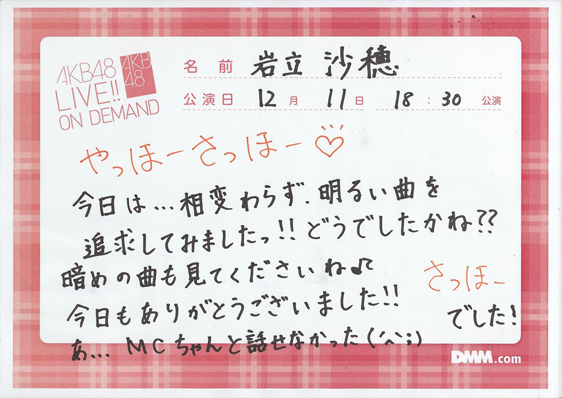 AKB48
LIVE!!
ON DEMAND
AKB
48
名前 岩立 沙穂
公演日 12月 11日 18:30 公演
やっほーさっほー♡
今日は...相変わらず、明るい曲を
追求してみましたっ!!どうでしたかね??
暗めの曲も見てくださいね♪
今日もありがとうございました!!
あ... MCちゃんと話せなかった(´^`;)
さっほー
でした!
DMM.com